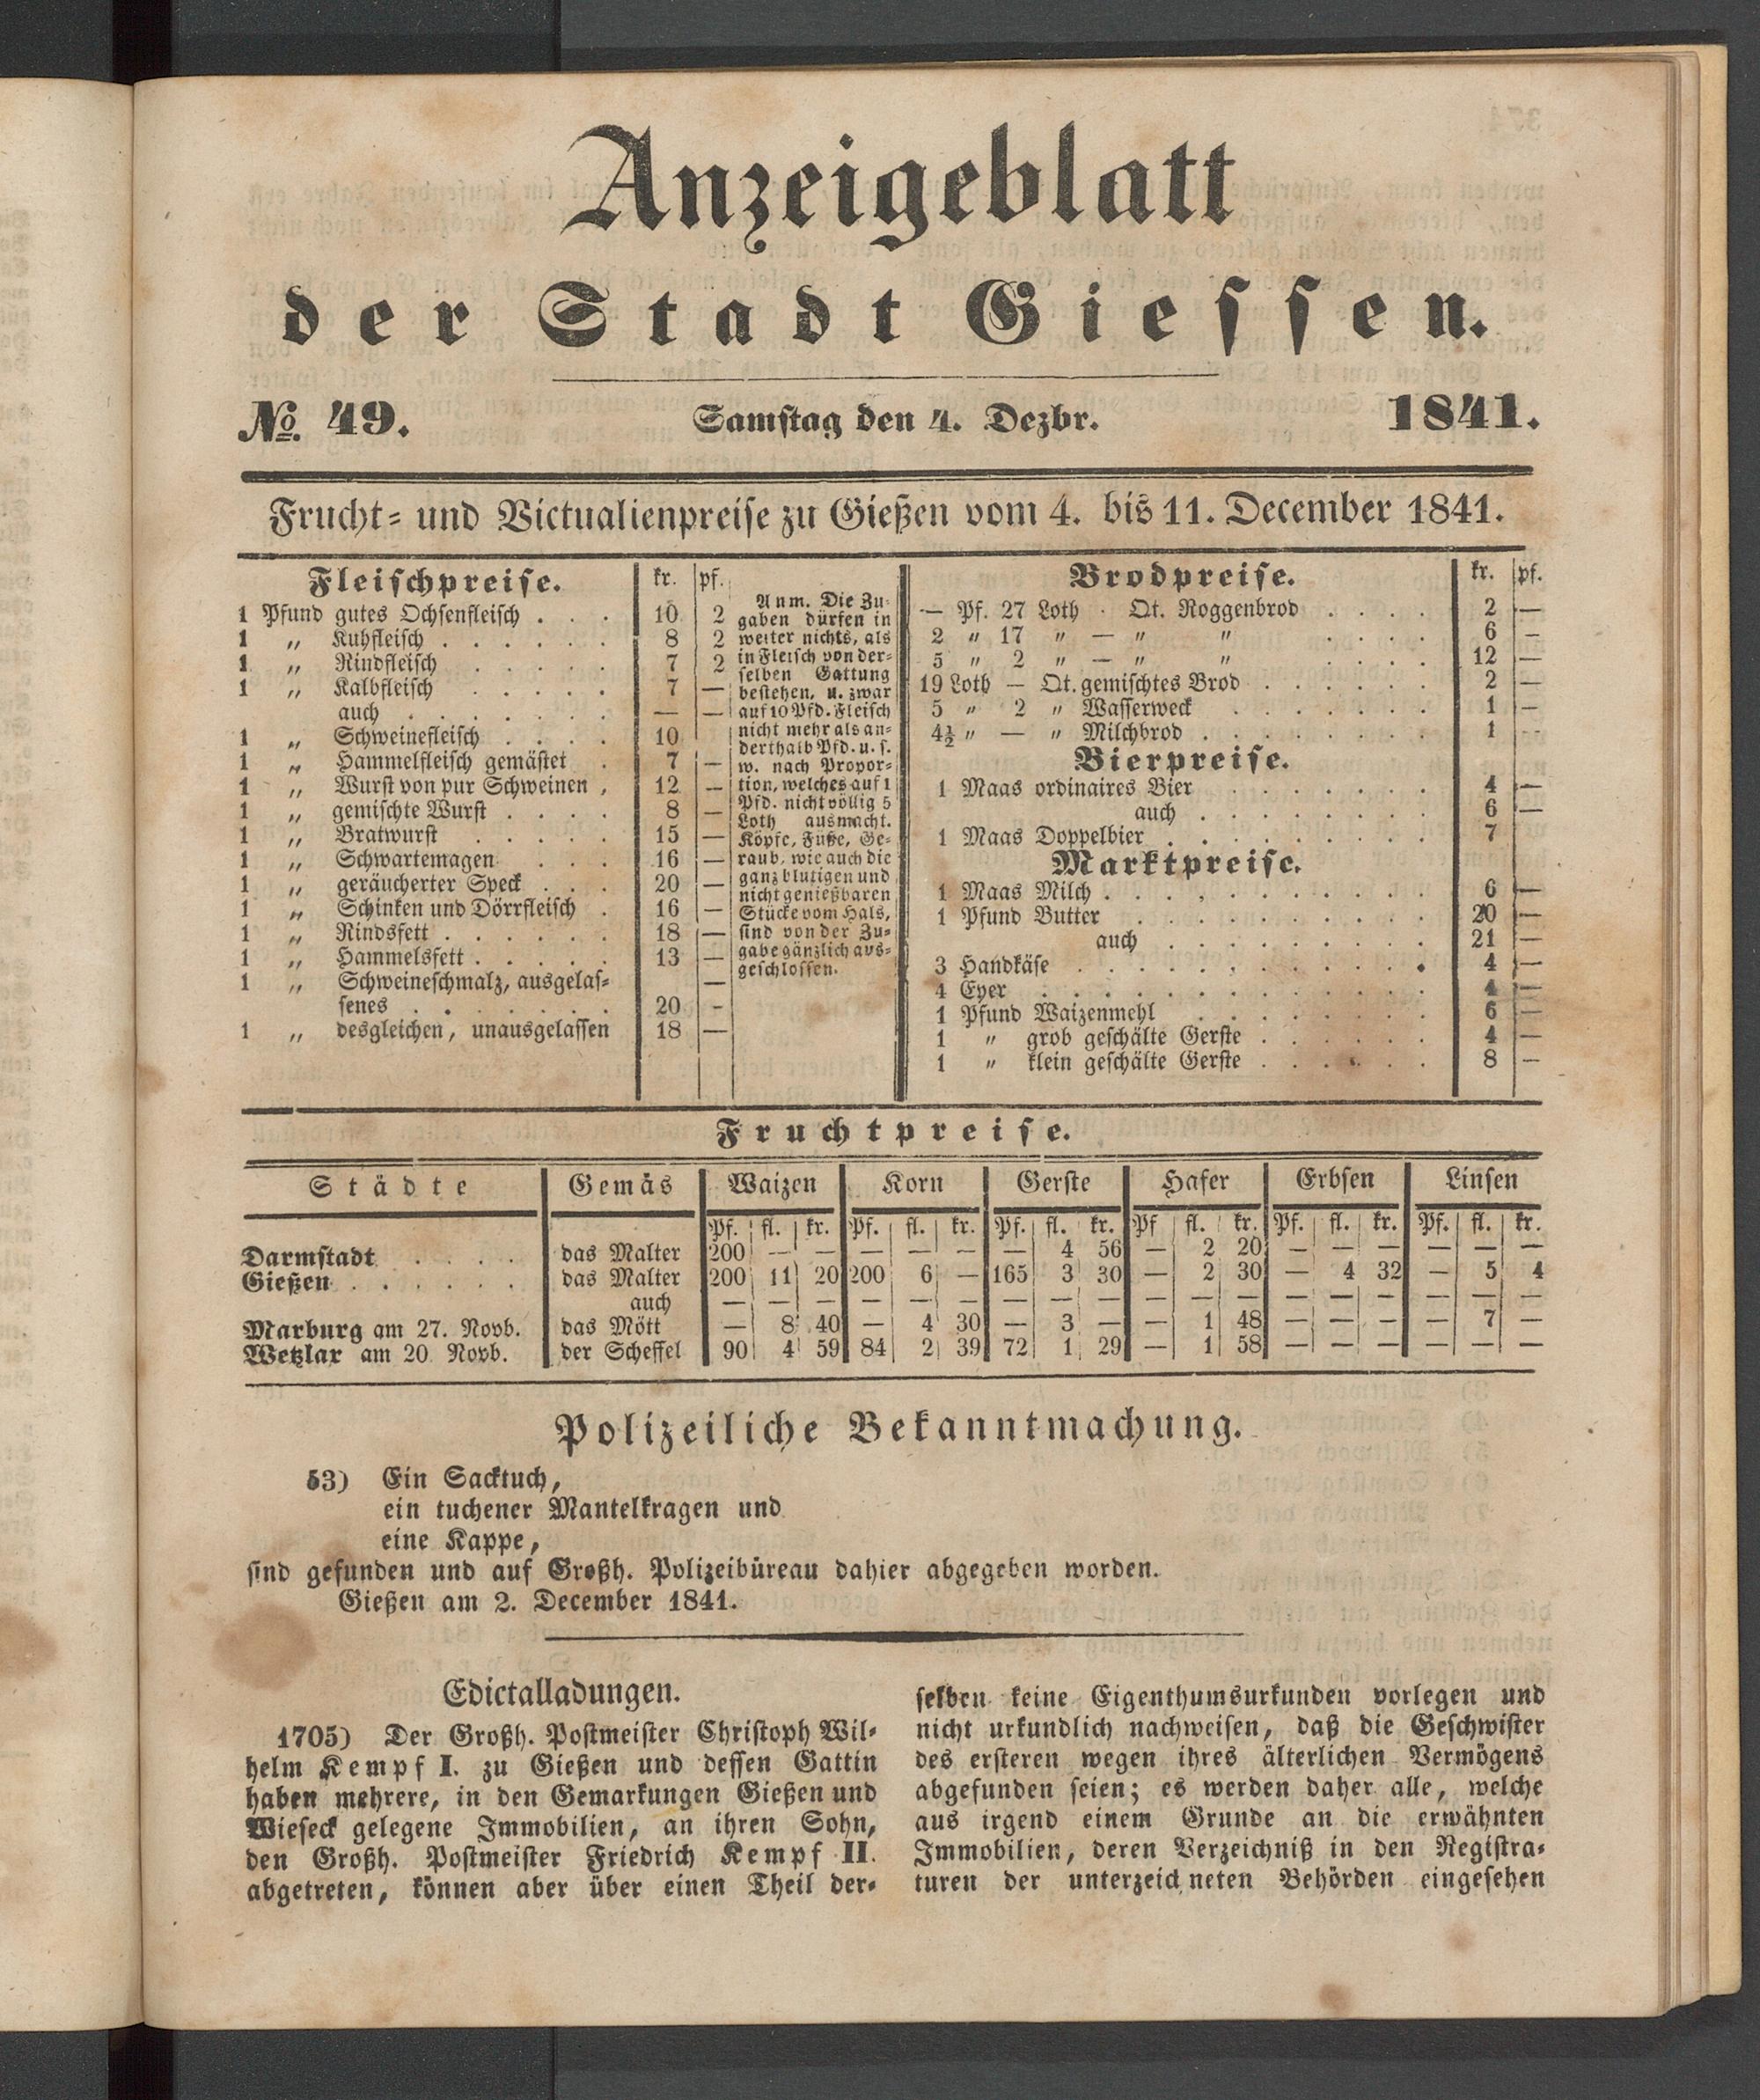 Anzeigeblatt
der Stadt Giessen.
No. 49. Samstag den 4. Dezbr. 1841.
Frucht- und Victualienpreise zu Gießen vom 4. bis 11. December 1841.
Fleischpreise. kr. pf.
1 Pfund gutes Ochsenfleisch . . . 10 2
1 „ Kuhfleisch . . . . . . 8 2
1 „ Rindfleisch . . . . . 7 2
1 „ Kalbfleisch . . . . . 7 —
auch . . . . . . . — —
1 „ Schweinefleisch . . . . 10
1 „ Hammelfleisch gemästet . 7 —
1 „ Wurst von pur Schweinen , 12 —
1 „ gemischte Wurst . . . . 8 —
1 „ Bratwurst . . . . . 15 —
1 „ Schwartemagen . . . 16 —
1 „ geräucherter Speck . . . 20 —
1 „ Schinken und Dörrfleisch . 16 —
1 „ Rindsfett . . . . . . 18 —
1 „ Hammelsfett . . . . . 13 —
1 „ Schweineschmalz, ausgelas- —
senes . . . . . . . 20 -
1 „ desgleichen, unausgelassen 18 —
Anm. Die Zu-
gaben dürfen in
weiter nichts, als
in Fleisch von der-
selben Gattung
bestehen, u. zwar
auf 10 Pfd. Fleisch
nicht mehr als an-
derthalb Pfd. u. s.
w. nach Propor-
tion, welches auf 1
Pfd. nicht völlig 5
Loth ausmacht.
Köpfe, Füße, Ge-
raub, wie auch die
ganz blutigen und
nicht genießbaren
Stücke vom Hals,
sind von der Zu-
gabe gänzlich aus-
geschlossen.
Brodpreise. kr. pf.
— Pf. 27 Loth · Qt. Roggenbrod . . . . 2 —
2 „ 17 „ — „ „ . . . . 6 —
5 „ 2 „ — „ „ . . . . 12 —
19 Loth — Qt. gemischtes Brod . . . . . . 2 —
5 „ 2 „ Wasserweck . . . . . . . 1 —
4½ „ — „ Milchbrod . . . . . . . . 1 --
Bierpreise.
1 Maas ordinaires Bier . . . . . . . 4 —
auch . . . . . . . . 6 —
1 Maas Doppelbier . . . . . . . . 7
Marktpreise.
1 Maas Milch . . . . . . . . . . . 6 —
1 Pfund Butter . . . . . . . . . . 20 —
auch . . . . . . . . . 21 —
3 Handkäse . . . . . . . . . . . . 4 —
4 Eyer . . . . . . . . . . . . . 4 —
1 Pfund Waizenmehl . . . . . . . . 6 —
1 „ grob geschälte Gerste . . . . . . 4 —
1 „ klein geschälte Gerste . . . . . . 8 —
Fruchtpreise.
Städte Gemäs Waizen Korn Gerste Hafer Erbsen Linsen
Pf. fl. kr. Pf. fl. kr. Pf. fl. kr. Pf fl. kr. Pf. fl. kr. Pf. fl. kr.
Darmstadt . . . . das Malter 200 — — — — — — 4 56 — 2 20 — — — — — —
Gießen . . . . . . das Malter 200 11 20 200 6 — 165 3 30 — 2 30 — 4 32 — 5 4
auch — — — — — — — — — — — — — — — — — —
Marburg am 27. Novb. das Mött — 8 40 — 4 30 — 3 — — 1 48 — — — — 7 —
Wetzlar am 20 Novb. der Scheffel 90 4 59 84 2 39 72 1 29 — 1 58 — — — — — —
Polizeiliche Bekanntmachung.
53) Ein Sacktuch,
ein tuchener Mantelkragen und
eine Kappe,
sind gefunden und auf Großh. Polizeibüreau dahier abgegeben worden.
Gießen am 2. December 1841.
Edictalladungen.
1705) Der Großh. Postmeister Christoph Wil-
helm Kempf I. zu Gießen und dessen Gattin
haben mehrere, in den Gemarkungen Gießen und
Wieseck gelegene Immobilien, an ihren Sohn,
den Großh. Postmeister Friedrich Kempf II.
abgetreten, können aber über einen Theil der-
selben keine Eigenthumsurkunden vorlegen und
nicht urkundlich nachweisen, daß die Geschwister
des ersteren wegen ihres älterlichen Vermögens
abgefunden seien; es werden daher alle, welche
aus irgend einem Grunde an die erwähnten
Immobilien, deren Verzeichniß in den Registra-
turen der unterzeichneten Behörden eingesehen